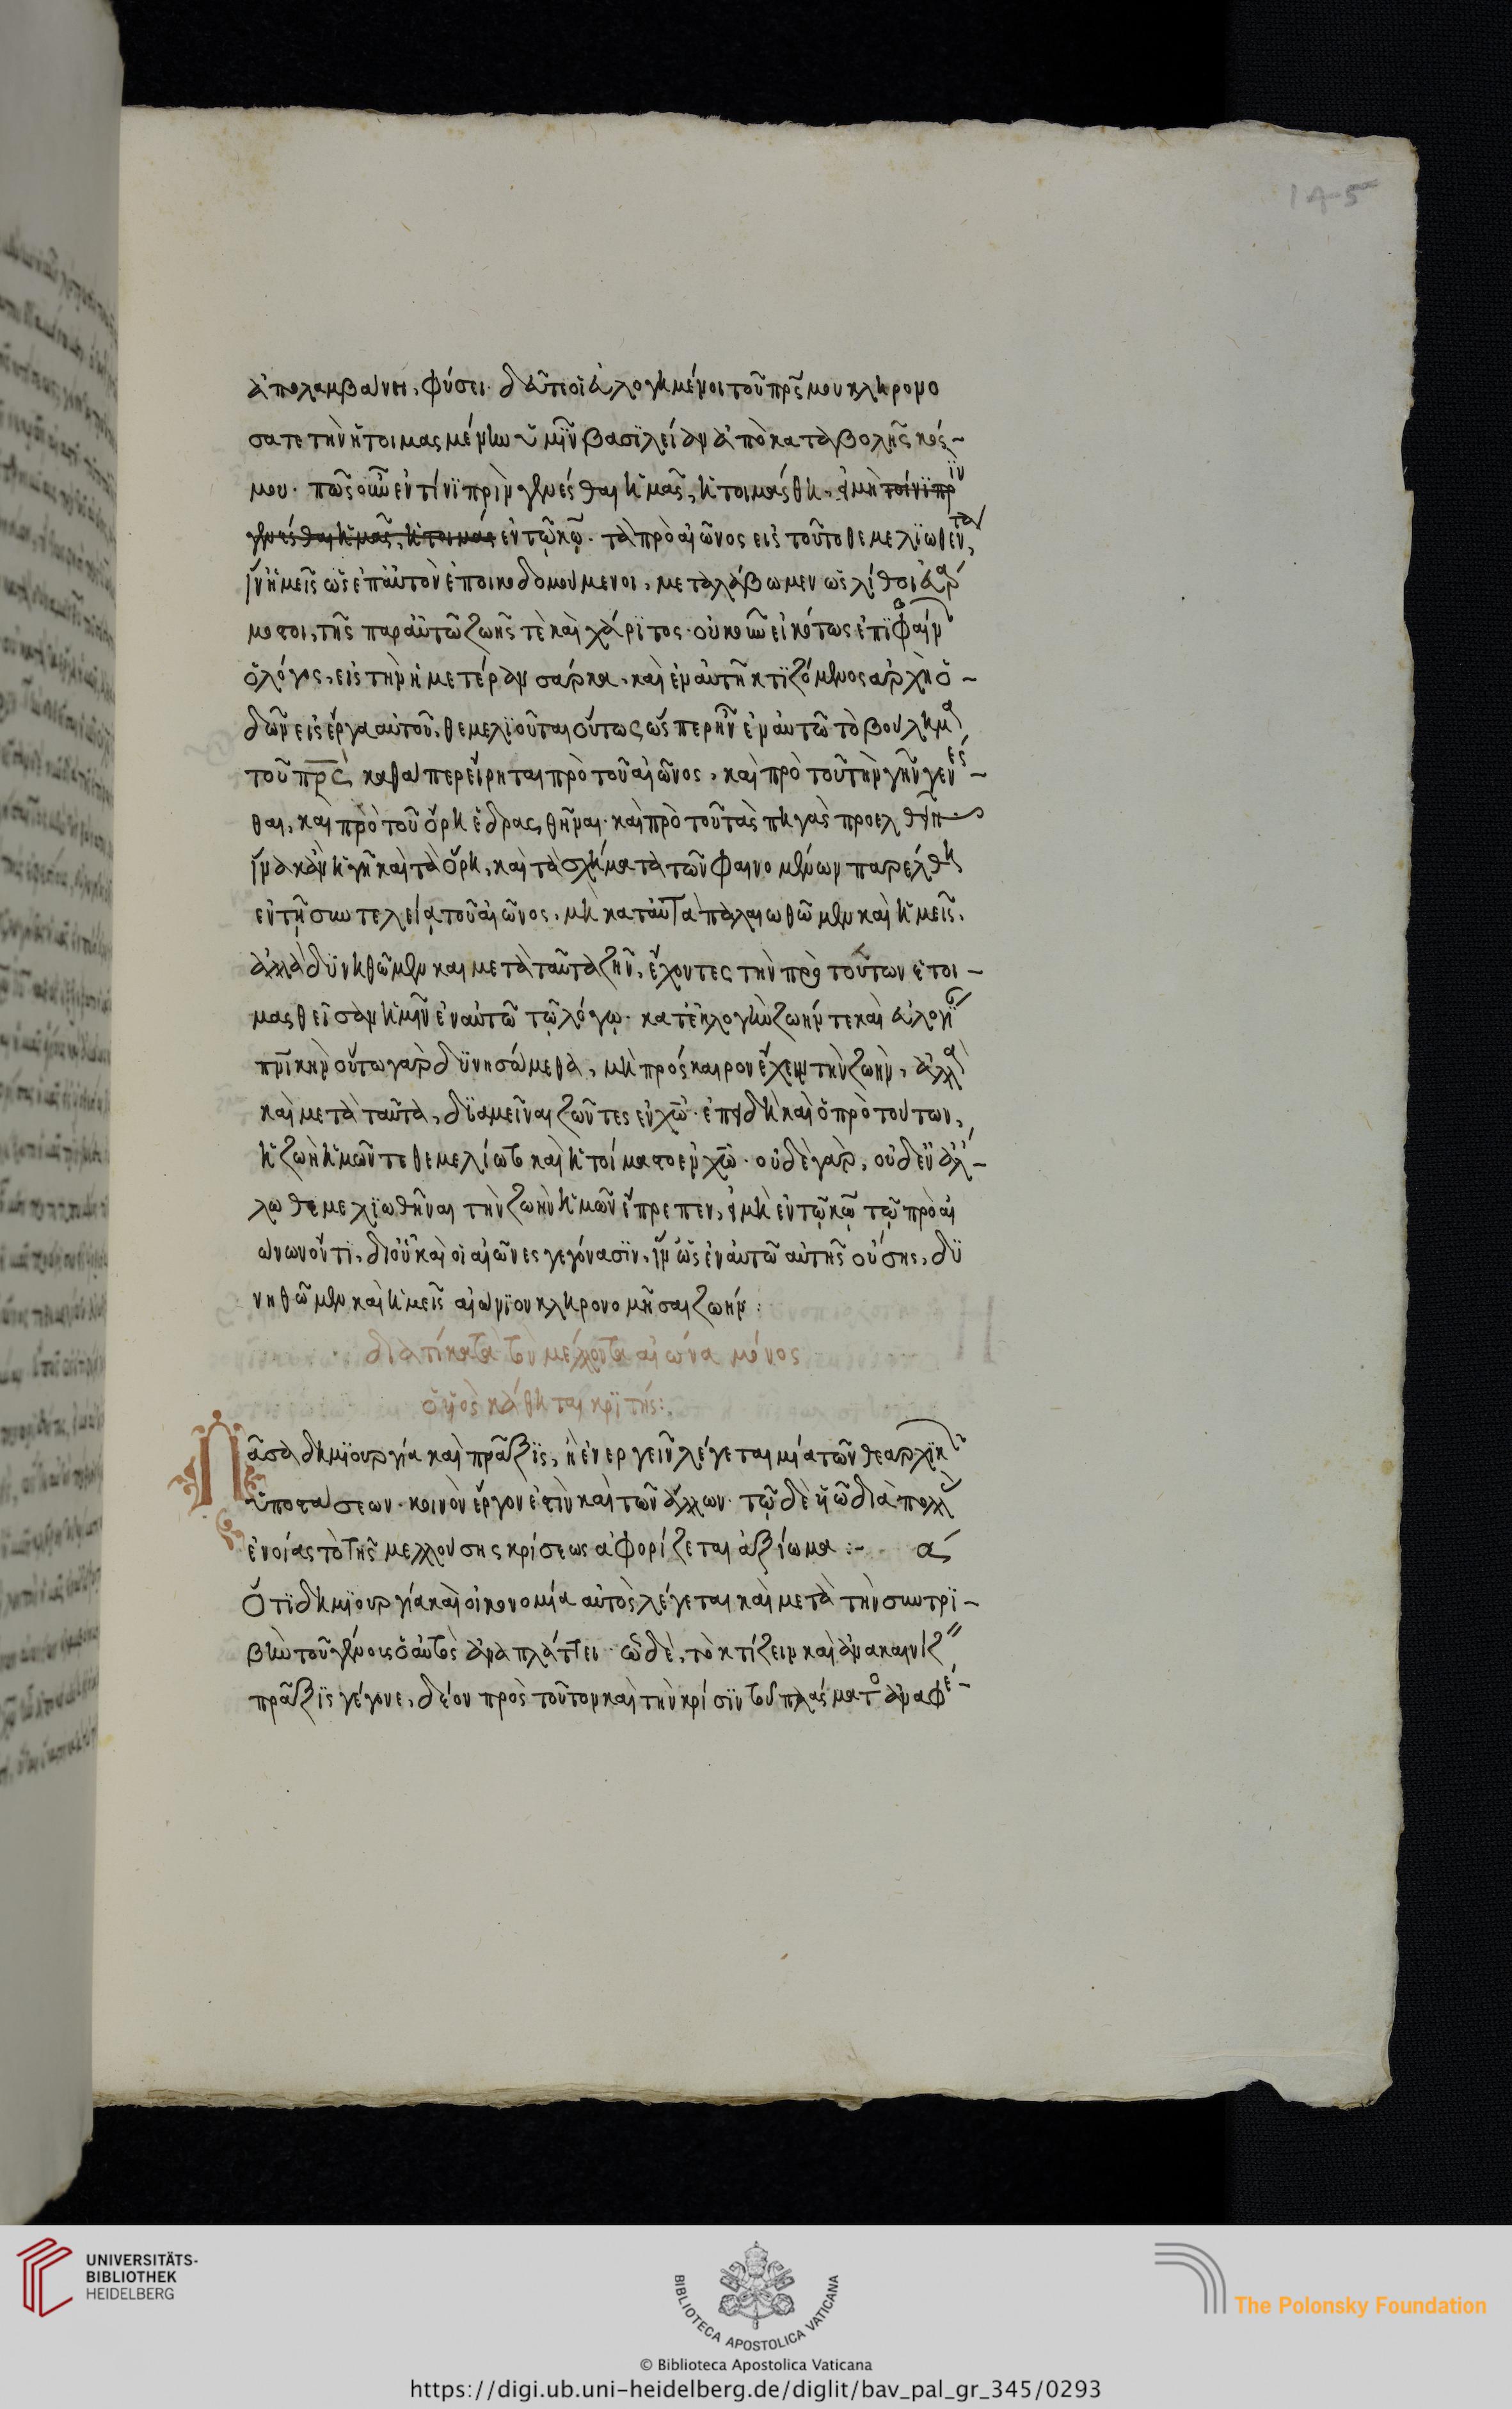 145
ἀπολαμβαίνει, φύσει. δεῦτε οἱ εὐλογημένοι τοῦ πρς μου κληρονο
σατε τὴν ἡτοιμασμένην ὑμῖν βασϊλείαν ἀπὸ καταβολῆς κόσ-
μου. πῶς οὖν ἐν τίνϊ πρὶν γενέσθαι ἡμᾶς, ἡτοιμάσθη, εἰ μὴ
ἐν τῶ κω. τὰ πρὸ αἰῶνος εἰς τοῦτο θεμελϊωθέντα,
ἵν' ἡμεῖς ὡς ἐπ' αὐτὸν ἐποικοδομούμενοι, μεταλάβωμεν ὡς λίθοι ἄρ
μοστοι, τῆς παρ' αὐτῶ ζωῆς τὲ καὶ χάρϊτος. οὐκοῦν εἰκότως ἐπϊφαίν
ὁ λόγος, εἰς τὴν ἡμετέραν σάρκα, καὶ ἐν αὐτῆ κτϊζόμενος ἀρχὴ ὁ-
δῶν εἰς ἔργα αὐτοῦ. θεμελϊοῦται οὕτως ὥσπερ ἦν ἐν αὐτῶ τὸ βούλημα
τοῦ πρς καθάπερ εἴρηται πρὸ τοῦ αἰῶνος, καὶ πρὸ τοῦ τὴν γῆν γενέσ-
θαι, καὶ πρὸ τοῦ ὄρη ἑδρασθῆναι. καὶ πρὸ τοῦ τὰς πηγὰς προελθεῖν
ἵνα κἂν ἡ γῆ καὶ τὰ ὄρη, καὶ τὰ σχήματα τῶν φαινομένων παρέλθη
ἐν τῆ συντελεία τοῦ αἰῶνος, μὴ κατ' αὐτὰ παλαιωθῶμεν καὶ ἡμεῖς,
ἀλλὰ δϋνηθῶμεν καὶ μετὰ ταῦτα ζῆν, ἔχοντες τὴν πρὸ τούτων ἑτοι-
μασθεῖσαν ἡμῖν ἐν αὐτῶ τῶ λόγω. κατ' ἐκλογὴν ζωήν τε καὶ εὐλογϊ
πνϊκὴν οὕτω γὰρ δϋνησόμεθα, μὴ πρόσκαιρον ἔχειν τὴν ζωὴν, ἀλλὰ
καὶ μετὰ ταῦτα, δϊαμεῖναι ζῶντες ἐν χῶ. ἐπειδὴ καὶ ὁ πρὸ τούτων,
ἡ ζωὴ ἡμῶν τεθεμελίωτο καὶ ἡτοίμαστο ἐν χῶ. οὐδὲ γὰρ, οὐδ' ἐν ἄλ-
λω θεμελϊωθῆναι τὴν ζωὴν ἡμῶν ἔπρεπεν, εἰ μὴ ἐν τῶ κω τῶ πρὸ αἰ
ώνων ὄντϊ, δι' οὗ καὶ οἱ αἰῶνες γεγόνασϊν, ἵν' ὡς ἐν αὐτῶ αὐτῆς οὔσης, δϋ
νηθῶμεν καὶ ἡμεῖς αἰώνϊον κληρονομῆσαι ζωήν:
διατί κατὰ τὸν μέλλοντα αἰῶνα μόνος
ὁ υἱὸς κάθηται κρϊτής:
Πᾶσα δημϊουργία καὶ πρᾶξϊς, ἢ ἐνεργεῖν λέγεται μία τῶν θεαρχϊκ
ὑποστάσεων. κοινὸν ἔργον ἐστὶν καὶ τῶν ἄλλων. τῶ δὲ υἱῶ διὰ πολλ
ἐνοίας τὸ τῆς μελλούσης κρίσεως ἀφορίζεται ἀξίωμα :- α
Ὅτϊ δημϊουργία καὶ οἰκονομία αὐτὸς λέγεται καὶ μετὰ τὴν συντρϊ-
βὴν τοῦ γένους ὁ αὐτὸς ἀναπλάττει. ὧδε, τὸ κτίζειν καὶ ἀνακαινίζ
πρᾶξϊς γέγονε, δέον πρὸς τοῦτον καὶ τὴν κρίσϊν τοῦ πλάσματο ἀναφέ-
UNIVERSITÄTS-
BIBLIOTHEK
HEIDELBERG
BIBLIOTECA APOSTOLICA VATICANA
The Polonsky Foundation
© Biblioteca Apostolica Vaticana
https://digi.ub.uni-heidelberg.de/diglit/bav_pal_gr_345/0293